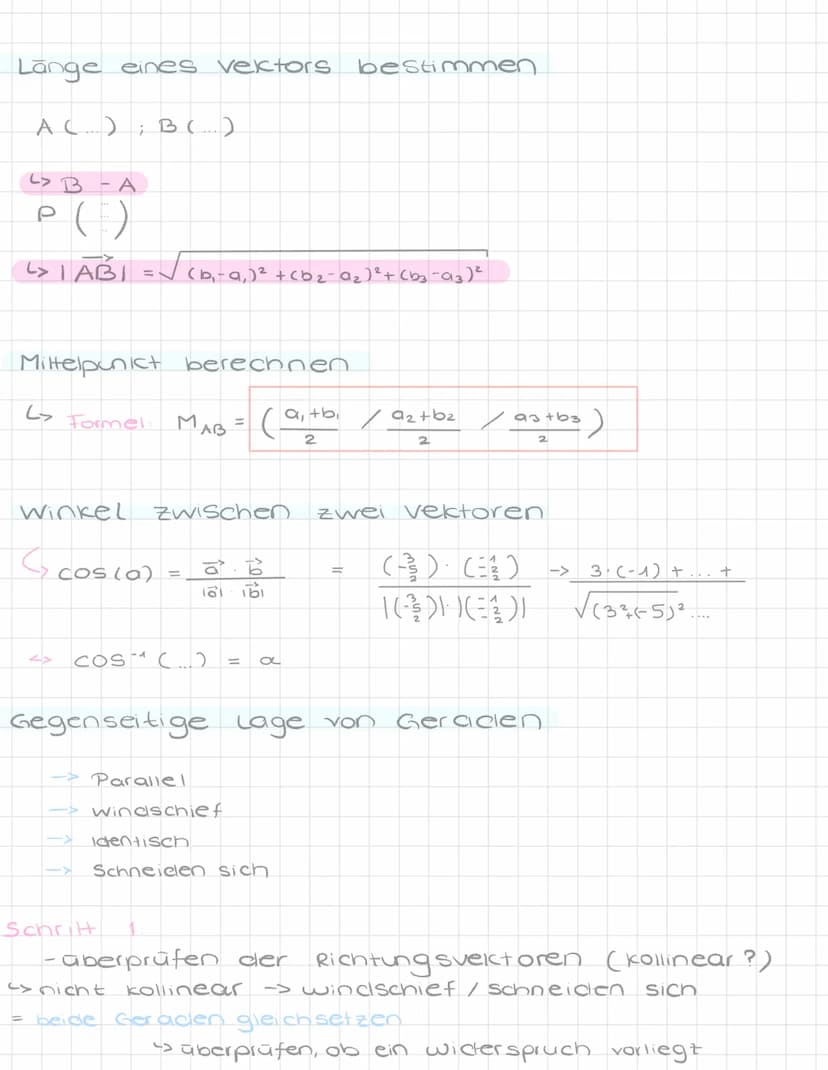 Länge eines Vektors bestimmen
A (...) ; B (...)
↳ B - A
P ( ⋮ )
↳ |AB⃗| = √(b₁-a₁)² + (b₂-a₂)² + (b₃-a₃)²
Mittelpunkt berechnen
↳ Formel: M_AB = ( (a₁+b₁)/2 / (a₂+b₂)/2 / (a₃+b₃)/2 )
Winkel zwischen zwei Vektoren
↳ cos(a) = (a⃗ · b⃗)/(|a⃗| · |b⃗|) = ((3 -5 2) · (-1 -2 2))/(|(3 -5 2)| · |(-1 -2 2)|) -> (3·(-1) + ... +)/(√(3²+(-5)² ....)
↳ cos⁻¹ (...) = α
Gegenseitige Lage von Geraden
-> Parallel
-> windschief
-> Identisch
-> Schneiden sich
Schritt 1
- überprüfen der Richtungsvektoren (kollinear?)
↳ nicht kollinear -> windschief / schneiden sich
= beide Geraden gleichsetzen
↳ überprüfen, ob ein Widerspruch vorliegt